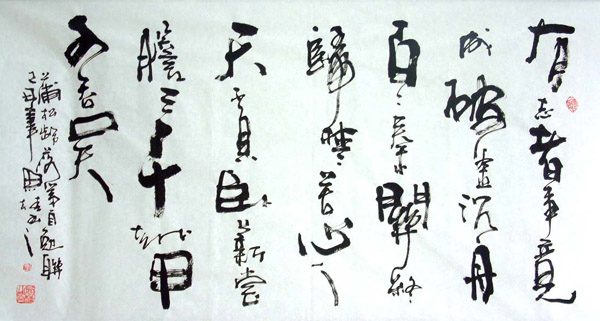 有志者事竟
成破釜沉舟
百二秦關終
歸楚苦心人
天不負臥薪嘗
膽三千越甲
可吞吳
蒲松齡落第自勉聯
己丑